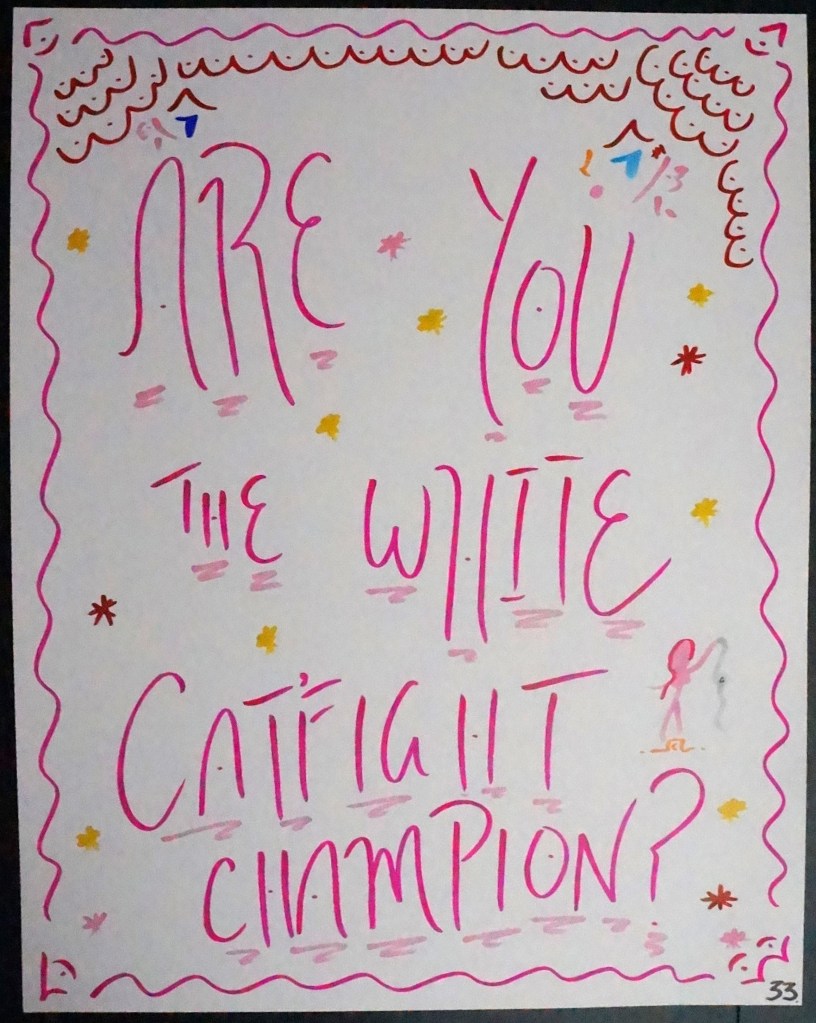 ARE YOU
THE WHITE
CAT'FIGHT
CHAMPION?
33